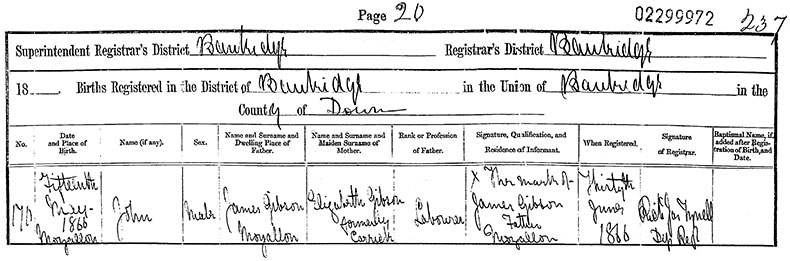 Page 20 02299972 237
Superintendent Registrar's District Banbridge Registrar's District Banbridge
18 . Births Registered in the District of Banbridge in the Union of Banbridge in the
County of Down
No. Date and Place of Birth. Name (if any). Sex. Name and Surname and Dwelling Place of Father. Name and Surname and Maiden Surname of Mother. Rank or Profession of Father. Signature, Qualification, and Residence of Informant. When Registered. Signature of Registrar. Baptismal Name, if added after Registration of Birth, and Date.
Fifteenth May 1866 Moyallon John Male James Gibson Moyallon Elizabeth Gibson formerly Carrick Labourer X The mark of James Gibson Father Moyallon Thirtyth June 1866 Tyrrell